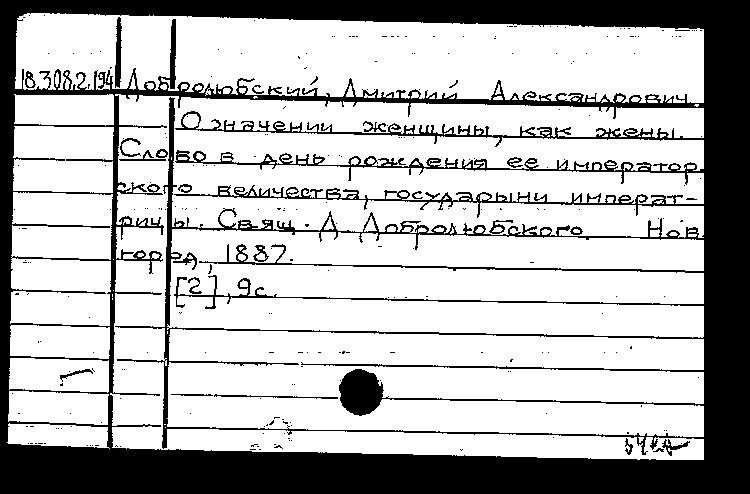 18.308.2.194 Добролюбский, Дмитрий Александрович.
О значении женщины, как жены.
Слово в день рождения ее император
ского величества, государыни императ-
рицы. Свящ. Д. Добролюбского. Нов
город, 1887.
[2], 9с.